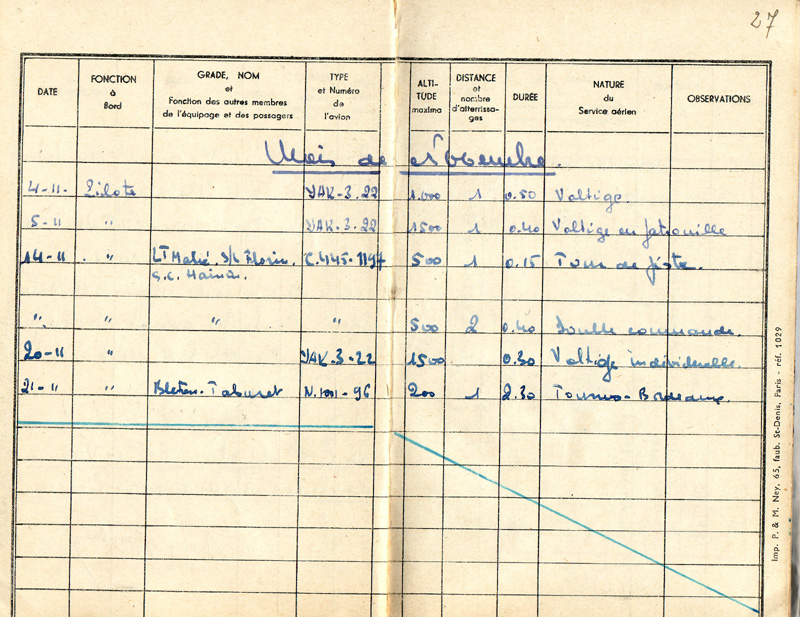 27
DATE FONCTION à Bord GRADE, NOM et Fonction des autres membres de l'équipage et des passagers TYPE et Numéro de l'avion ALTI-TUDE maxima DISTANCE et nombre d'atterrissages DURÉE NATURE du Service aérien OBSERVATIONS
Mois de Novembre.
4-11- Pilote YAK-3.22 1.000 1 0.50 Voltige.
5-11 " YAK.3.22 1500 1 0.40 Voltige en patrouille
14-11 " LT Mahé. S/L C.445-1197 500 1 0.15 Tour de piste.
S.C.
" " " " 500 2 0.40 Double commande.
20-11 " YAK-3-22 1500 0.30 Voltige individuelle.
21-11 " Tabuset N.1001-96 200 1 2.30 Bordeaux.
Imp. P. & M. Ney, 65, faub. St-Denis, Paris - réf. 1029